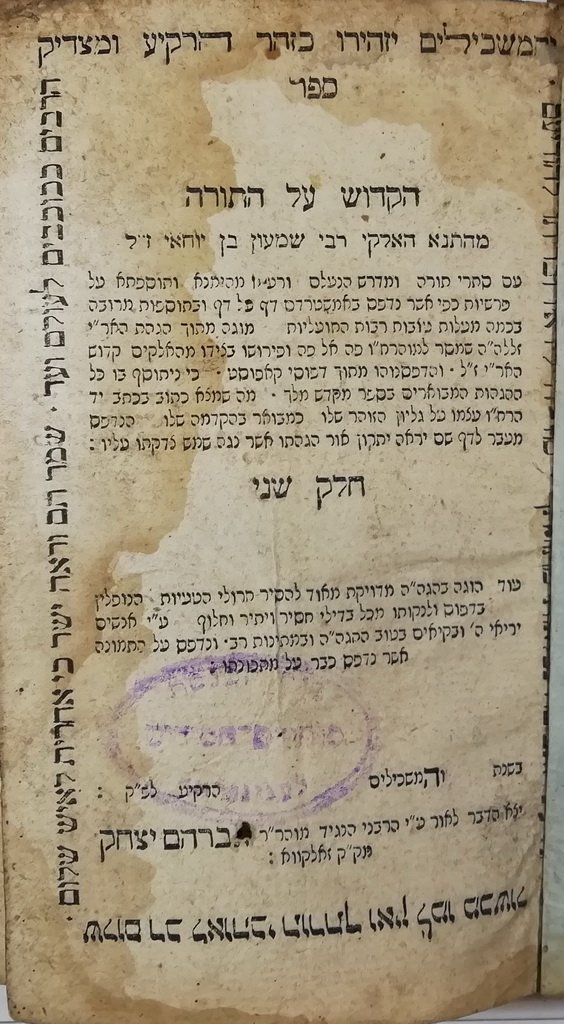 והמשכילים יזהירו כזהר הרקיע ומצדיק
הרבים ככוכבים לעולם ועד · שמר תם וראה ישר כי אחרית לאיש שלום ·
שלום רב לאוהבי תורתך ואין למו מכשול
ספר
הקדוש על התורה
מהתנא האלקי רבי שמעון בן יוחאי ז״ל
עם סתרי תורה ומדרש הנעלם ורעיא מהימנא ותוספתא על
פרשיות כפי אשר נדפס באמשטרדם דף על דף ובתוספות מרובה
בכמה מעלות טובות רבות התועליות מוגה מתוך הגהת האר״י
זללה״ה שמסר למוהרח״ו פה אל פה ופירושו בצידו מהאלקים קדוש
האר״י ז״ל · והדפסנוהו מתוך דפוסי קאפוסט · כי ניתוסף בו כל
ההגהות המבוארים בספר מקדש מלך · מה שמצא כתוב בכתב יד
הרח״ו עצמו על גליון הזוהר שלו כמבואר בהקדמה שלו הנדפס
מעבר לדף שם יראה יתרון אור הגהתו אשר נגה שמש צדקתו עליו :
חלק שני
עוד הוגה בהגה״ה מדויקת מאוד להסיר חרולי הטעיות הנופלין
בדפוס ולנקותו מכל בדילי חסיר ויתיר וחלוף ע״י אנשים
יריאי ה׳ ובקיאים בטוב ההגה״ה ובמתינות רב · ונדפס על התמונה
אשר נדפס כבר על מתכונתו :
בשנת והמשכילים הרקיע לפ״ק :
יצא הדבר לאור ע״י הרבני הנגיד מוהר״ר אברהם יצחק
מק״ק זאלקווא :